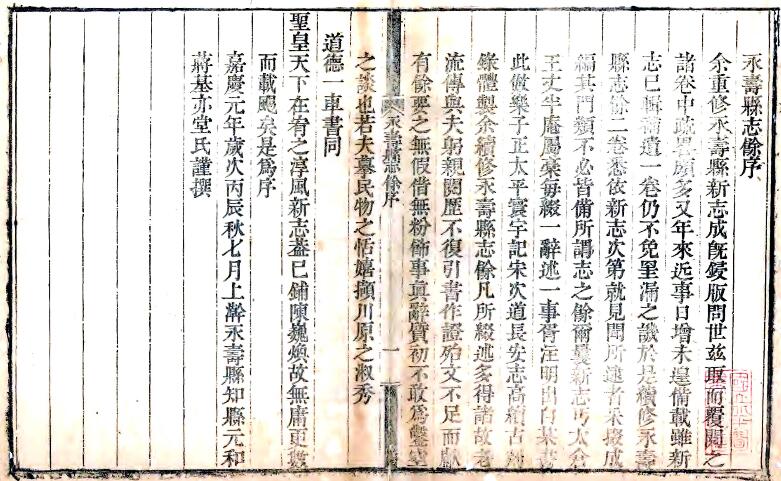 永壽縣志餘序
余重修永壽縣新志成旣鋟版問世茲取而覆閱之
諸卷中疏畧頗多又年來近事日增未遑備載雖新
志已輯補遺一卷仍不免罣漏之譏於是續修永壽
縣志餘二卷悉依新志次第就見聞所逮者采掇成
編其門類不必皆備所謂志之餘爾曩新志丐太倉
王丈半庵屬藁每綴一辭述一事胥注明出自某書
此倣樂子正太平寰宇記宋次道長安志高續古剡
錄體製余續修永壽縣志餘凡所綴述多得諸故老
流傳與夫躬親閱歷不復引書作證殆文不足而獻
有餘要之無假借無粉飾事眞辭質初不敢爲鑿空
永壽縣志餘序 一
之談也若夫摹民物之恬嬉擷川原之淑秀
道德一車書同
聖皇天下在宥之淳風新志葢已鋪陳巍煥故無庸更數
而載颺矣是爲序
嘉慶元年歲次丙辰秋七月上澣永壽縣知縣元和
蔣基亦堂氏謹撰